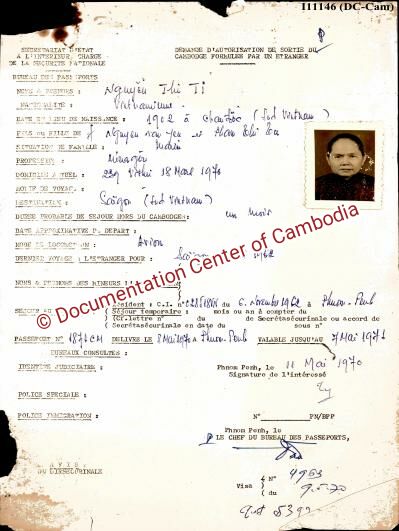 I11146 (DC-Cam)
SECRETARIAT D'ETAT
A L'INTERIEUR, CHARGE
DE LA SECURITE NATIONALE
DEMANDE D'AUTORISATION DE SORTIE DU
CAMBODGE FORMULEE PAR UN ETRANGER
BUREAU DES PASSEPORTS
NOMS & PRENOMS : Nguyễn Thi Ti
NATIONALITE : Vietnamienne
DATE ET LIEU DE NAISSANCE : 1902 à Chaudoc (Sud Vietnam)
FILS ou FILLE DE : Nguyen van
SITUATION DE FAMILLE :
PROFESSION : Ménagère
DOMICILE ACTUEL : 229 Vithei 18 Mars 1970
MOTIF DE VOYAGE :
DESTINATION : Saïgon (Sud Vietnam)
DUREE PROBABLE DE SEJOUR HORS DU CAMBODGE : un mois
DATE APPROXIMATIVE DE DEPART :
MODE DE LOCOMOTION : Avion
DERNIER VOYAGE A L'ETRANGER POUR :
NOMS & PRENOMS DES MINEURS
SEJOUR AU
Résident : C.I. n° du 6 Novembre 1962 à Phnom-Penh
Séjour temporaire : mois ou an à compter du
(Cf.lettre n° du de Secrétasécurinale ou accord de
Secrétasécurinale en date du sous n°
PASSEPORT N° 1871 CM DELIVRE LE 8 Mai 1970 à Phnom-Penh VALABLE JUSQU'AU 7 Mai 1971
BUREAUX CONSULTES :
Phnom Penh, le 11 Mai 1970
IDENTITE JUDICIAIRE :
Signature de l'intéressé
POLICE SPECIALE :
POLICE IMMIGRATION :
N° PN/BPP
Phnom Penh, le
LE CHEF DU BUREAU DES PASSEPORTS,
AVIS
DU
Visa
N° 4983
du 9.5.70
5399
© Documentation Center of Cambodia